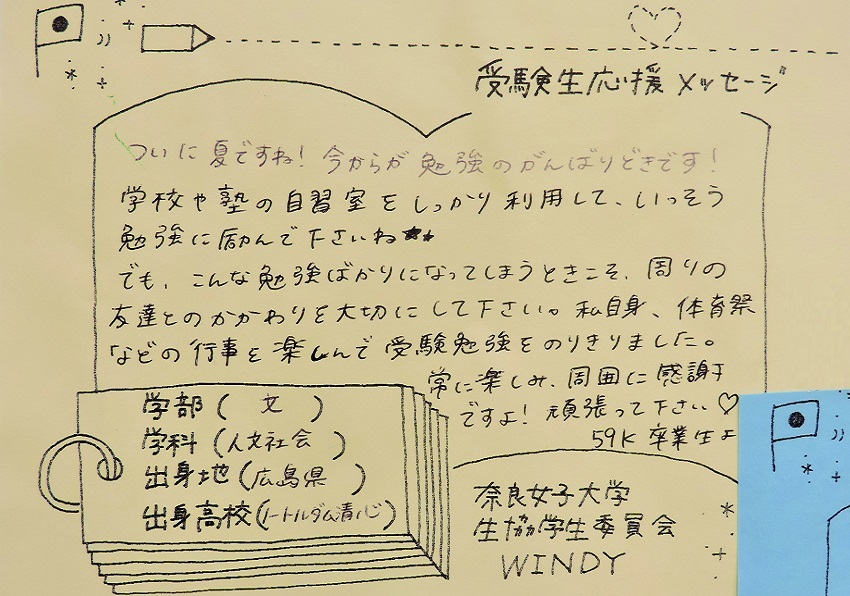 受験生応援メッセージ
ついに夏ですね！今からが勉強のがんばりどきです！
学校や塾の自習室をしっかり利用して、いっそう
勉強に励んで下さいね
でも、こんな勉強ばかりになってしまうときこそ、周りの
友達とのかかわりを大切にして下さい。私自身、体育祭
などの行事を楽しんで受験勉強をのりきりました。
常に楽しみ、周囲に感謝
ですよ！頑張って下さい♡
59K 卒業生よ
学部（文）
学科（人文社会）
出身地（広島県）
出身高校（ノートルダム清心）
奈良女子大学
生協学生委員会
WINDY